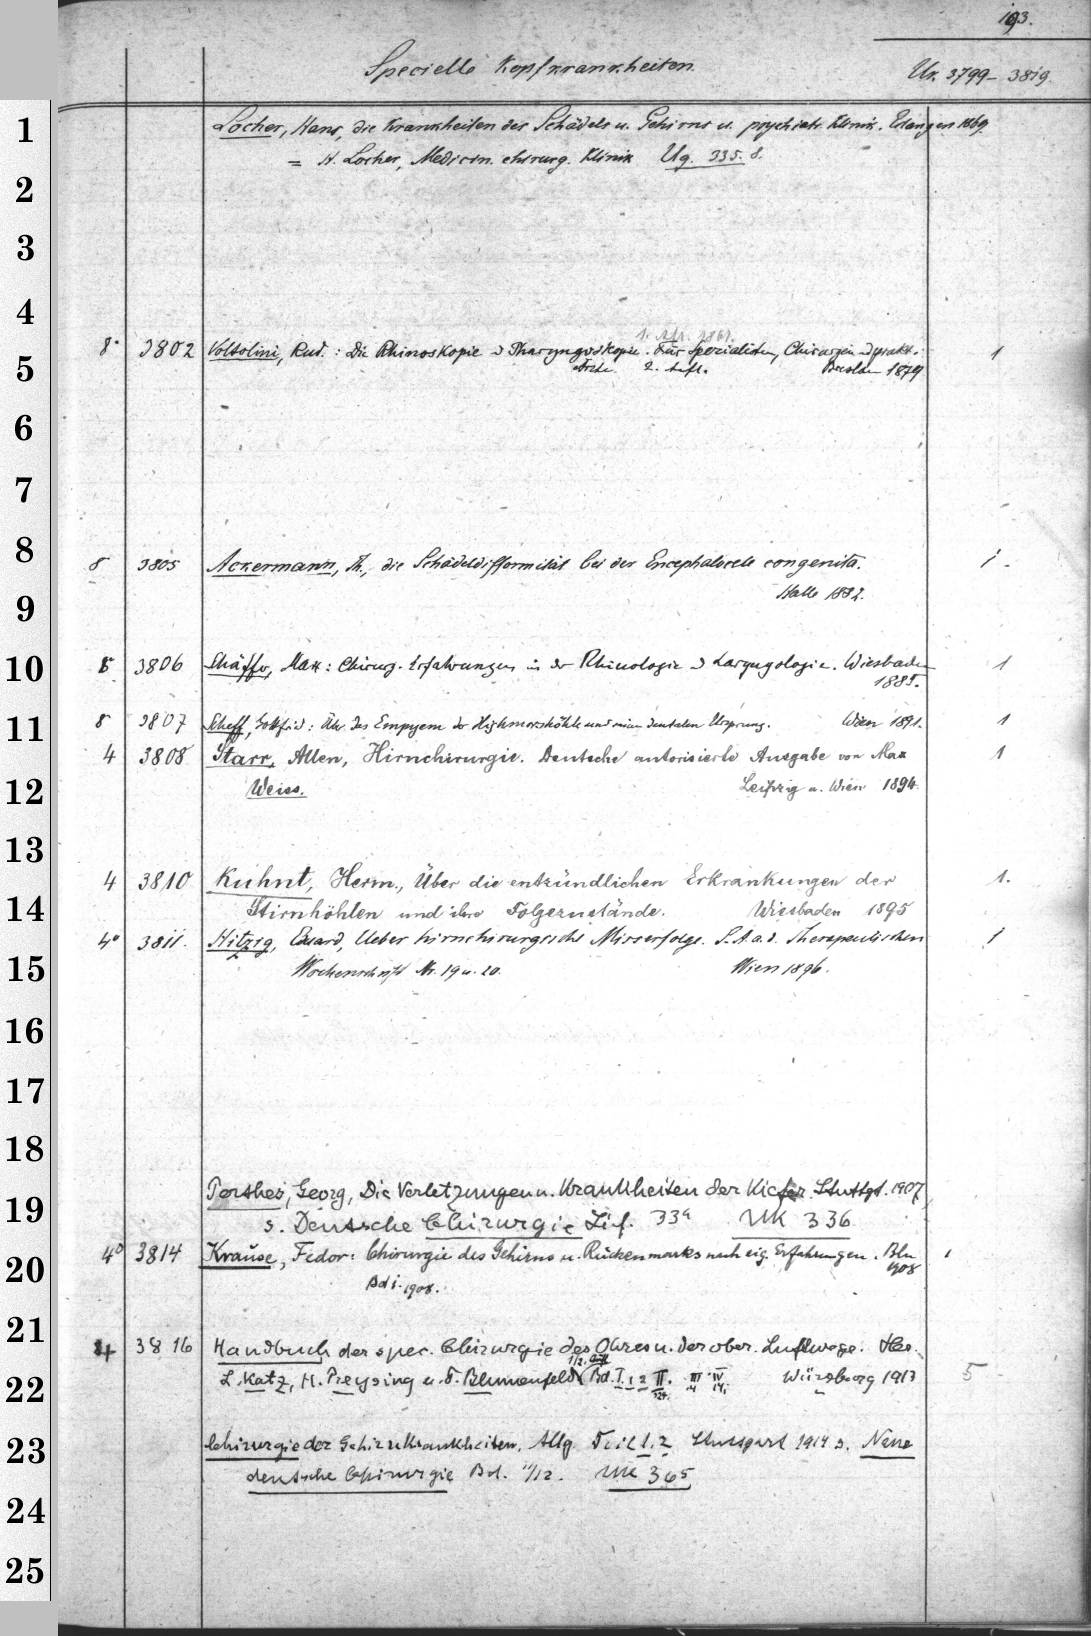 193.
Specielle Kopfkrankheiten.
Uk. 3799–3819.
1
Locher, Hans, die Krankheiten des Schädels u. Gehirns u. psychiatr. Klinik. Erlangen 1869.
= H. Locher, Medicin. chirurg. Klinik Ug. 335. 8.
2
3
4
1. Afl. 1861.
8° 3802 Voltolini, Rud.: Die Rhinoskopie u Pharyngoskopie. Für Spezialisten, Chirurgen u prakt. 1
5
Ärzte. 2. Aufl. Breslau 1879
6
7
8
8 3805 Ackermann, Th., die Schädeldifformität bei der Encephalocele congenita. 1.
9
Halle 1882.
10
8 3806 Schäffer, Max: Chirurg. Erfahrungen in der Rhinologie u Laryngologie. Wiesbaden 1
1885.
11
8 3807 Scheff, Gottfried: Üb. das Empyem der Highmorshöhle und seinen dentalen Ursprung. Wien 1891. 1
4 3808 Starr, Allen, Hirnchirurgie. Deutsche autorisierte Ausgabe von Max 1
12
Weiss. Leipzig u. Wien 1894.
13
4 3810 Kuhnt, Herm., Über die entzündlichen Erkrankungen der 1.
14
Stirnhöhlen und ihre Folgezustände. Wiesbaden 1895
4° 3811. Hitzig, Eduard, Ueber hirnchirurgische Misserfolge. S. A. a. d. Therapeutischen 1
15
Wochenschrift Nr. 19 u. 20. Wien 1896.
16
17
18
19
Perthes, Georg, Die Verletzungen u. Krankheiten der Kiefer. Stuttgt. 1907,
s. Deutsche Chirurgie Lif. 33a UK 336
20
4° 3814 Krause, Fedor: Chirurgie des Gehirns u. Rückenmarks nach eig. Erfahrungen. Bln 1
1908
Bd 1. 1908.
21
4 3816 Handbuch der spec. Chirurgie des Ohres u. der ober. Luftwege. Her.
1/2. Aufl
22
L. Katz, H. Preysing u. F. Blumenfeld Bd. I. 1 2 II. III IV Würzburg 1913 5
23
Chirurgie der Gehirnkrankheiten. Allg. Teil 1. 2 Stuttgart 1914 s. Neue
deutsche Chirurgie Bd. 11/12. UK 365
24
25